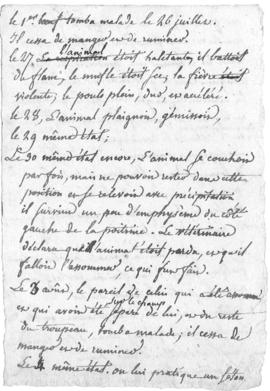 le 1er bœuf tomba malade le 26 juillet.
Il cessa de manger et de ruminer.
le 27, l'animal
la respiration étoit haletante; il battoit
du flanc, le mufle étoit sec, la fièvre étoit
violente; le pouls plein, dur, et accéléré.
le 28, L'animal plaignoit, gémissoit,
le 29 même état;
Le 30 même état encore, L'animal se couchoit
par fois, mais ne pouvoit rester dans cette
position et se relevoit avec précipitation
il survint un peu d'emphysème du côté
gauche de la poitrine. Le vétérinaire
déclara que l'animal étoit perdu, et qu'il
falloit l'assommer, ce qui fut fait.
Le 3 août, le pareil de celui qui a été assommé
sur le champ
et qui avoit été séparé de lui, et du reste
du troupeau, tomba malade; il cessa de
manger et de ruminer.
Le 4 même état. on lui pratiqua un séton